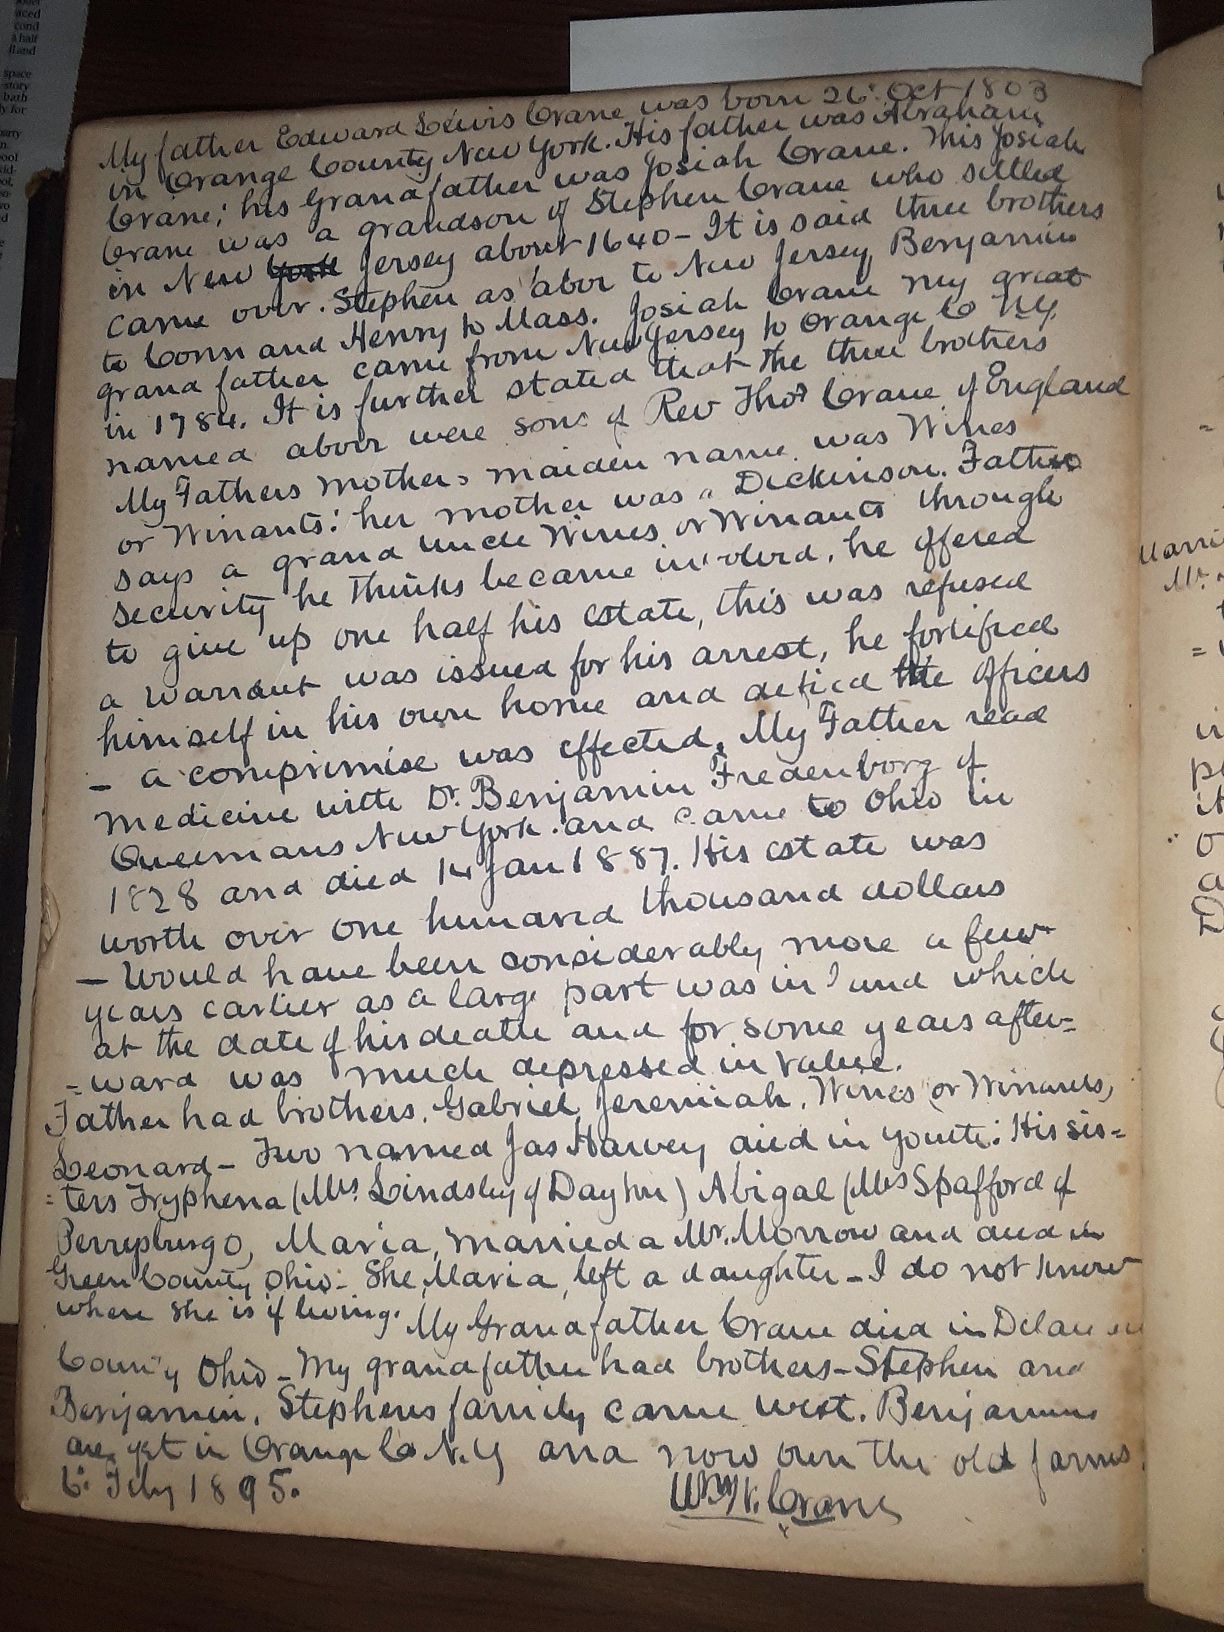 aced
cond
a half
lland
space
story
bath
ly for
arty
n.
ool
kid-
ool,
so-
wo
ed
My father Edward Lewis Crane was born 26: Oct 1803
in Orange County New York. His father was Abraham
Crane; his Grandfather was Josiah Crane. This Josiah
Crane was a grandson of Stephen Crane who settled
in New York Jersey about 1640 – It is said three brothers
came over. Stephen as abov to New Jersey, Benjamin
to Conn and Henry to Mass. Josiah Crane my great
grand father came from New Jersey to Orange Co N.Y.
in 1784. It is further stated that the three brothers
named abov were sons of Rev Thos Crane of England
My Fathers mothers maiden name was Wines
or Winants: her mother was a Dickinson. Father
says a grand uncle Wines or Winants through
security he thinks became involved, he offered
to give up one half his estate, this was refused
a warrant was issued for his arrest, he fortified
himself in his own home and defied the officers
– a compromise was effected. My Father read
medicine with Dr. Benjamin Fredenborg of
New York. and came to Ohio in
1828 and died 14 Jan 1887. His estate was
worth over one hundred thousand dollars
– Would have been considerably more a few
years earlier as a large part was in land which
at the date of his death and for some years after=
=ward was much depressed in value.
Father had brothers, Gabriel, Jeremiah, Wines (or Winants,
Leonard – Two named Jas Harvey died in youth: His sis=
=ters Tryphena (Mrs. Lindsley of Dayton) Abigal (Mrs Spafford of
Perrysburg O, Maria, married a Mr. Morrow and died in
Green County, Ohio – She, Maria, left a daughter – I do not know
where she is if living. My Grandfather Crane died in Delaware
County Ohio – My grandfather had brothers – Stephen and
Benjamin. Stephens family came west. Benjamins
are yet in Orange Co N.Y and now own the old farms.
6: Feby 1895. Wm H. Crane